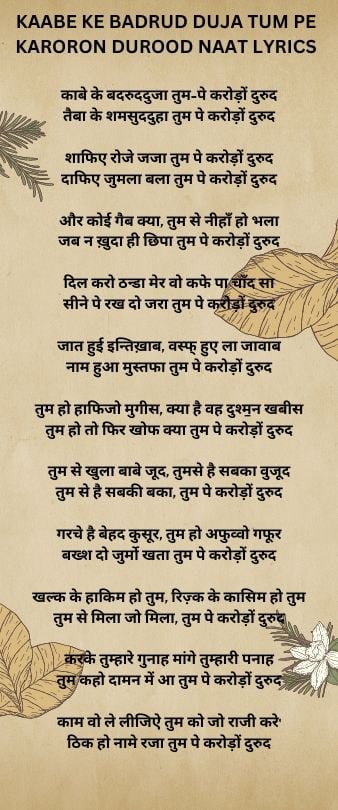 KAABE KE BADRUD DUJA TUM PE
KARORON DUROOD NAAT LYRICS
काबे के बदरुददुजा तुम-पे करोड़ों दुरुद
तैबा के शमसुददुहा तुम पे करोड़ों दुरुद
शाफिए रोजे जजा तुम पे करोड़ों दुरुद
दाफिए जुमला बला तुम पे करोड़ों दुरुद
और कोई गैब क्या, तुम से नीहाँ हो भला
जब न ख़ुदा ही छिपा तुम पे करोड़ों दुरुद
दिल करो ठन्डा मेर वो कफे पा चाँद सा
सीने पे रख दो जरा तुम पे करोड़ों दुरुद
जात हुई इन्तिख़ाब, वस्फ् हुए ला जावाब
नाम हुआ मुस्तफा तुम पे करोड़ों दुरुद
तुम हो हाफिजो मुगीस, क्या है वह दुश्म॒न खबीस
तुम हो तो फिर खोफ क्या तुम पे करोड़ों दुरुद
तुम से खुला बाबे जूद, तुमसे है सबका वुजूद
तुम से है सबकी बका, तुम पे करोड़ों दुरुद
गरचे है बेहद कुसूर, तुम हो अफुव्वो गफूर
बख्श दो जुर्मो खता तुम पे करोड़ों दुरुद
खल्क के हाकिम हो तुम, रिज़्क के कासिम हो तुम
तुम से मिला जो मिला, तुम पे करोड़ों दुरुद
करके तुम्हारे गुनाह मांगे तुम्हारी पनाह
तुम कहो दामन में आ तुम पे करोड़ों दुरुद
काम वो ले लीजिऐ तुम को जो राजी करे'
ठिक हो नामे रजा तुम पे करोड़ों दुरुद